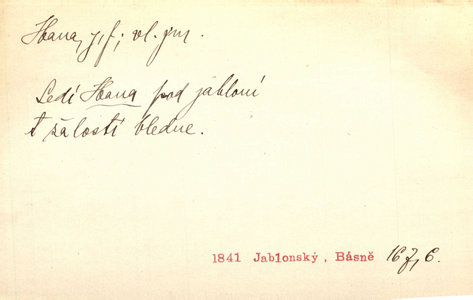 Hana, y, f; vl. jm.
Sedí Hana pod jabloní
t žalostí bledne.
1841 Jablonský, Básně 167, 6.